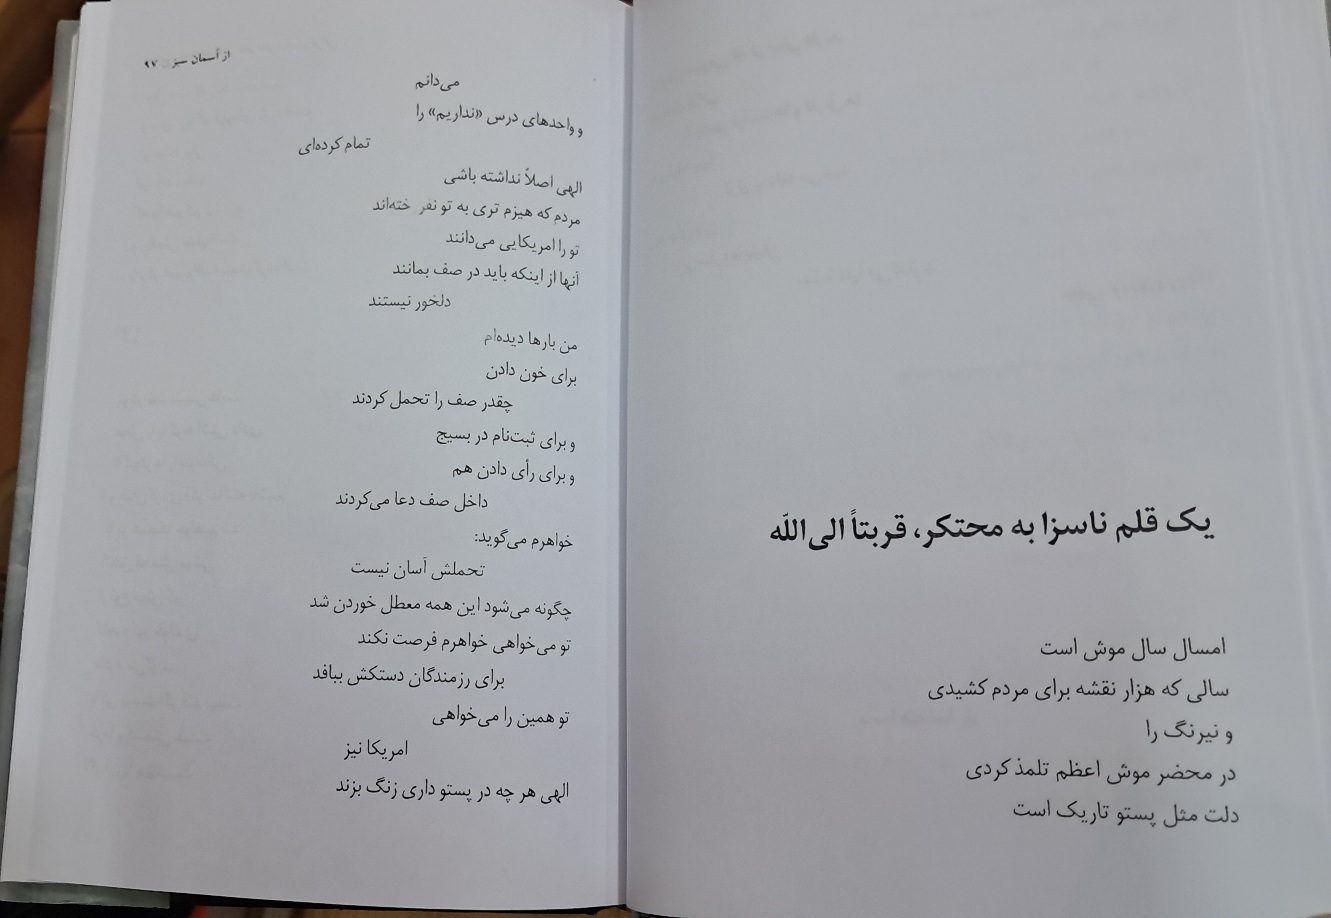 یک قلم ناسزا به محتکر، قربتاً الی‌الله
امسال سال موش است
سالی که هزار نقشه برای مردم کشیدی
و نیرنگ را
در محضر موش اعظم تلمذ کردی
دلت مثل پستو تاریک است
از آسمان سبز ۹۷
می‌دانم
و واحدهای درس «نداریم» را
تمام کرده‌ای
الهی اصلاً نداشته باشی
مردم که هیزم تری به تو نفر خته‌اند
تو را امریکایی می‌دانند
آنها از اینکه باید در صف بمانند
دلخور نیستند
من بارها دیده‌ام
برای خون دادن
چقدر صف را تحمل کردند
و برای ثبت‌نام در بسیج
و برای رأی دادن هم
داخل صف دعا می‌کردند
خواهرم می‌گوید:
تحملش آسان نیست
چگونه می‌شود این همه معطل خوردن شد
تو می‌خواهی خواهرم فرصت نکند
برای رزمندگان دستکش ببافد
تو همین را می‌خواهی
امریکا نیز
الهی هر چه در پستو داری زنگ بزند